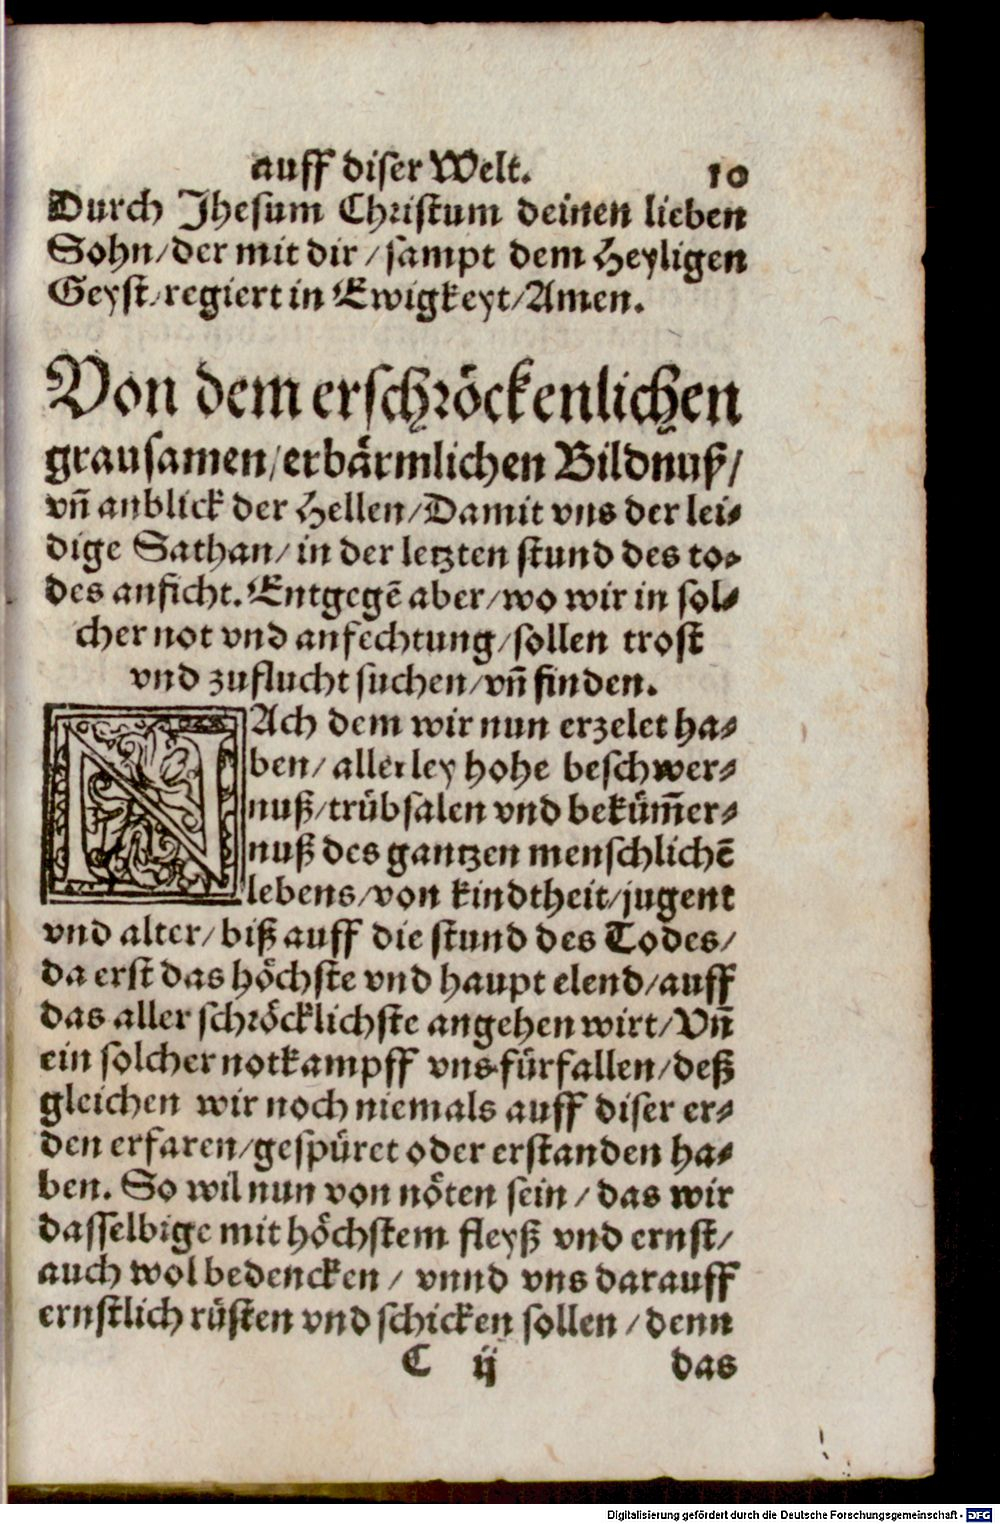 auff diser Welt. 10
Durch Jhesum Christum deinen lieben
Sohn/der mit dir/sampt dem Heyligen
Geyst/regiert in Ewigkeyt/Amen.
Von dem erschröckenlichen
grausamen/erbärmlichen Bildnuß/
vñ anblick der Hellen/Damit vns der lei⸗
dige Sathan/in der letzten stund des to⸗
des anficht. Entgegẽ aber/wo wir in sol⸗
cher not vnd anfechtung/sollen trost
vnd zuflucht suchen/vñ finden.
NAch dem wir nun erzelet ha⸗
ben/allerley hohe beschwer⸗
nuß/trübsalen vnd beküm̃er⸗
nuß des gantzen menschlichẽ
lebens/von kindtheit/jugent
vnd alter/biß auff die stund des Todes/
da erst das höchste vnd haupt elend/auff
das aller schröcklichste angehen wirt/Vñ
ein solcher notkampff vns fürfallen/deß
gleichen wir noch niemals auff diser er⸗
den erfaren/gespüret oder erstanden ha⸗
ben. So wil nun von nöten sein/das wir
dasselbige mit höchstem fleyß vnd ernst/
auch wol bedencken/vnnd vns darauff
ernstlich rüsten vnd schicken sollen/denn
C ij das
Digitalisierung gefördert durch die Deutsche Forschungsgemeinschaft - DFG